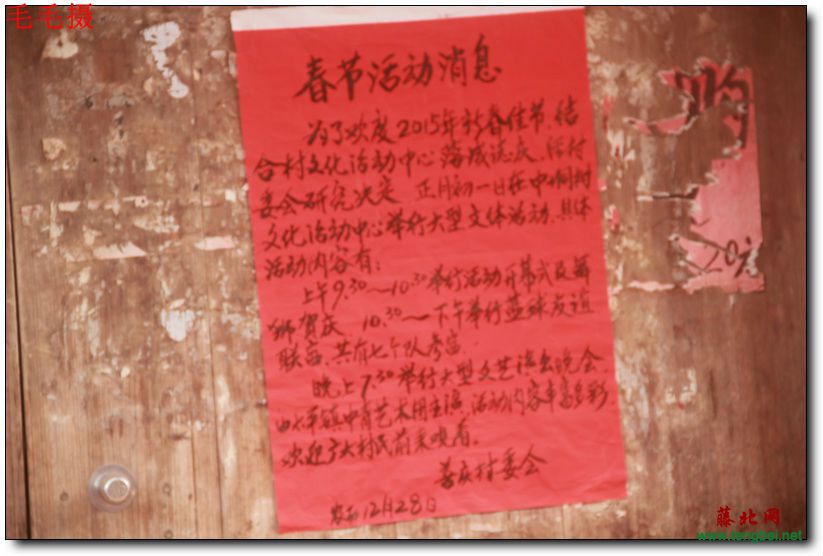 毛毛摄
春节活动消息
为了欢度2015年新春佳节,结
合村文化活动中心落成誌庆,经村
委会研究决定 正月初一日在中峒村
文化活动中心举行大型文体活动.具体
活动内容有:
上午9.30~10.30举行活动开幕式及舞
狮贺庆 10.30~下午举行蓝球友谊
联赛,共有七个队参赛.
晚上7.30举行大型文艺演出晚会
由水 镇中育艺术团主演,活动内容丰富多彩
欢迎广大村民前来观看。
善庆村委会
12月28日
购
藤北网
www.tengbei.net